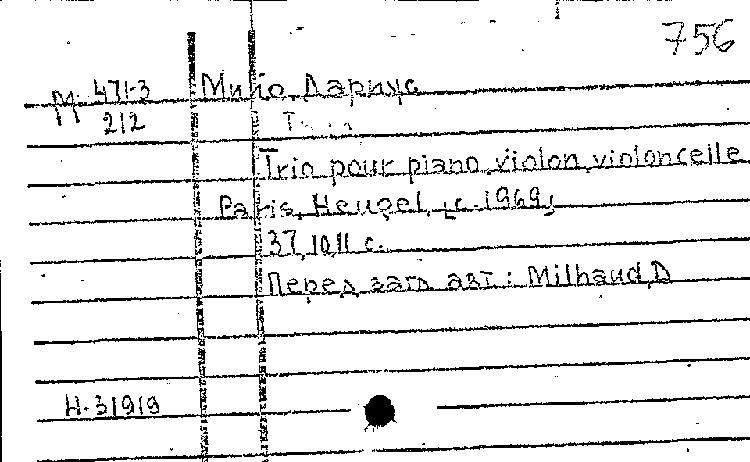 756
М 471-3 Мийо, Дариус
212
Trio pour piano, violon, violoncelle
Paris, Heugel, [c. 1969]
37, 10, 11 с.
Перед загл. авт.: Milhaud, D
Н-31919